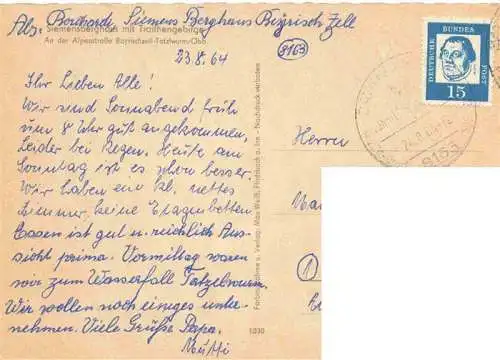 Abs. Borchardt, Siemens Berghaus Bayrisch Zell
Siemensberghaus mit Traithengebirge
An der Alpenstraße Bayrischzell-Tatzelwurm/Obb.
8163
23.8.64
DEUTSCHE BUNDES POST
15
8163
Ihr Lieben Alle!
Wir sind Sonnabend früh
um 8 Uhr gut angekommen,
Leider bei Regen. Heute am
Sonntag ist es schon besser.
Wir haben ein kl. nettes
Zimmer, keine Etagenbetten
Essen ist gut u. reichlich Aus-
sicht prima. Vormittag waren
wir zum Wasserfall Tatzelwurm.
Wir wollen noch einiges unter-
nehmen. Viele Grüße Papa.
Mutti
Verlag, Max Weiß, Fischbach a. Inn - Nachdruck verboten
1030
Herrn